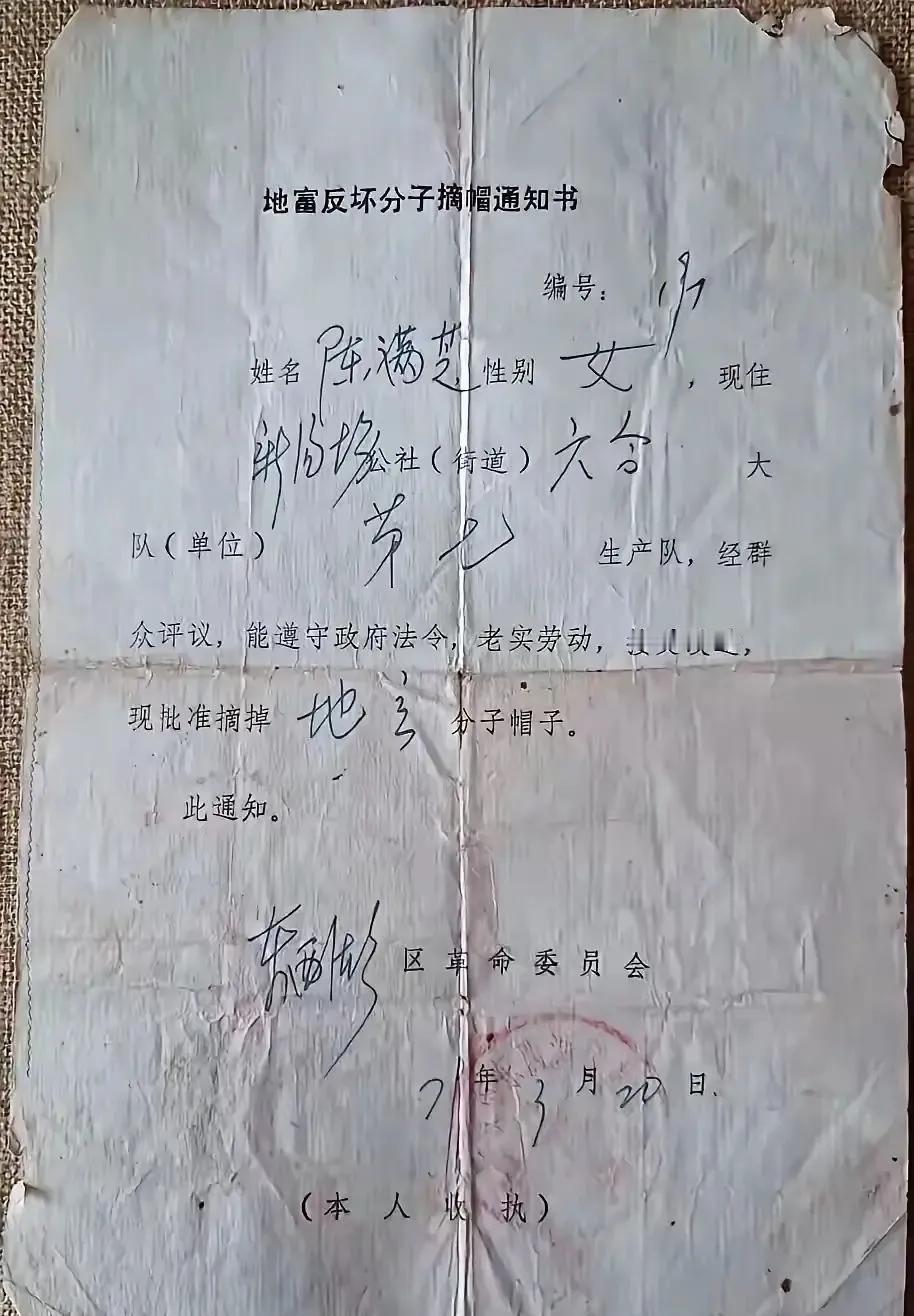 地富反坏分子摘帽通知书
编号:
姓名 陈满芝 性别 女 , 现住
公社(街道) 六合 大
队(单位) 第七 生产队, 经群
众评议, 能遵守政府法令, 老实劳动,
现批准摘掉 地主 分子帽子。
此通知。
区革命委员会
年 3 月 20 日
(本人收执)